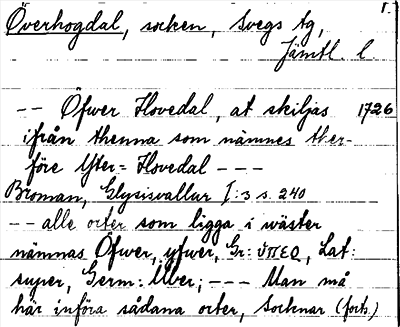 Överhogdal, socken, Svegs tg, 1.
Jämtl. l.
-- Öfwer Hovedal, at skiljas 1726
ifrån thenna som nämnes ther-
före Ytter= Hovedal ---
Broman, Glysisvallur I:3 s. 240
-- alle orter som ligga i wäster
nämnas Öfwer, yfwer, Gr: ὑπερ, Lat:
super, Germ: Über; --- Man må
här införa sådana orter, Socknar (forts.)